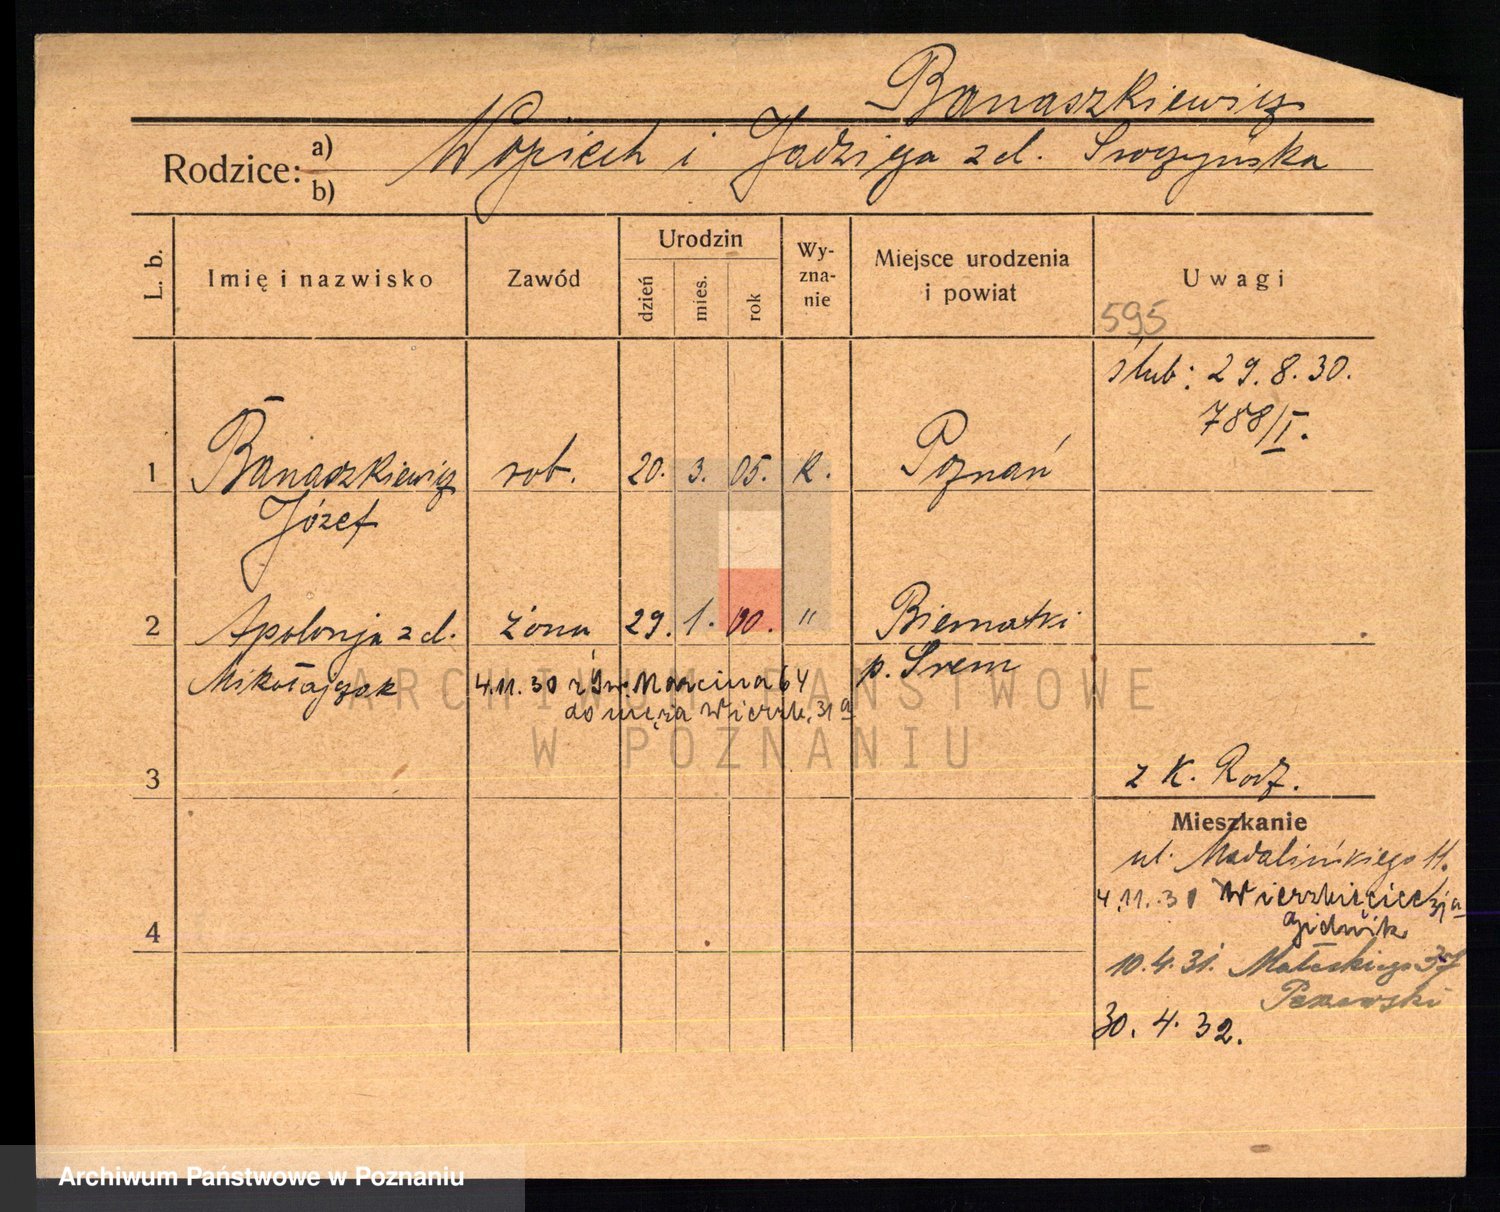 Banaszkiewicz
Rodzice: a) b) Wojciech i Jadwiga z d.
L. b.
Imię i nazwisko
Zawód
Urodzin
dzień
mies.
rok
Wy-
zna-
nie
Miejsce urodzenia
i powiat
Uwagi
595
ślub: 29. 8. 30.
788/I.
1 Banaszkiewicz rob. 20. 3. 05. k. Poznań
Józef
2 Apolonja z d. żona 29. 1. 00. " Biernatki
Mikołajczak p. Śrem
4.11.30 z Św. Marcina 64
do męża Wierzb. 31a
ARCHIWUM PAŃSTWOWE
W POZNANIU
3
z K. Rodz.
Mieszkanie
ul. Madalińskiego 11.
4.11.30 Wierzbięcice 31a
4
10.4.31. Małeckiego 37
30. 4. 32.
Archiwum Państwowe w Poznaniu